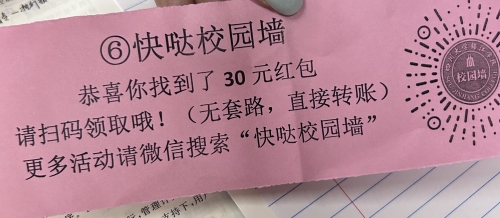 ⑥快哒校园墙
恭喜你找到了 30 元红包
请扫码领取哦！（无套路，直接转账）
更多活动请微信搜索“快哒校园墙”
校园墙